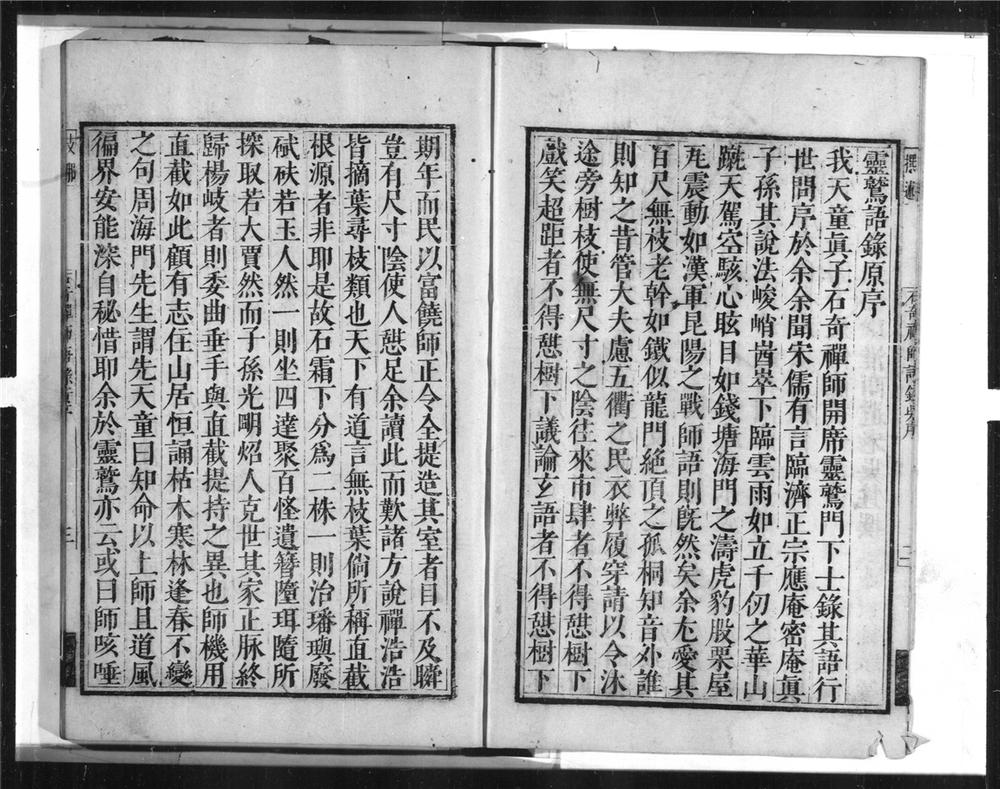 靈鷲語錄原序
我天童眞子石奇禪師開席靈鷲門下士錄其語行
世問序於余余聞宋儒有言臨濟正宗應庵密庵眞
子孫其說法峻峭崷崒下臨雲雨如立千仞之華山
蹴天駕空駭心眩目如錢塘海門之濤虎豹股栗屋
瓦震動如漢軍昆陽之戰師語則旣然矣余尢愛其
百尺無枝老幹如鐵似龍門絕頂之孤桐知音外誰
則知之昔管大夫慮五衢之民衣弊履穿請以令沐
途旁樹枝使無尺寸之陰往來市肆者不得憇樹下
戲笑超距者不得憇樹下議論玄語者不得憇樹下
期年而民以富饒師正令全提造其室者目不及瞬
豈有尺寸陰使人憇足余讀此而歎諸方說禪浩浩
皆摘葉尋枝類也天下有道言無枝葉倘所稱直截
根源者非耶是故石霜下分爲二株一則治璠璵廢
碔砆若玉人然一則坐四達聚百怪遺簪墮珥隨所
探取若大賈然而子孫光明炤人克世其家正脉終
歸楊岐者則委曲垂手與直截提持之異也師機用
直截如此顧有志住山居恒誦枯木寒林逢春不變
之句周海門先生謂先天童曰知命以上師且道風
徧界安能深自秘惜耶余於靈鷲亦云或曰師咳唾
三